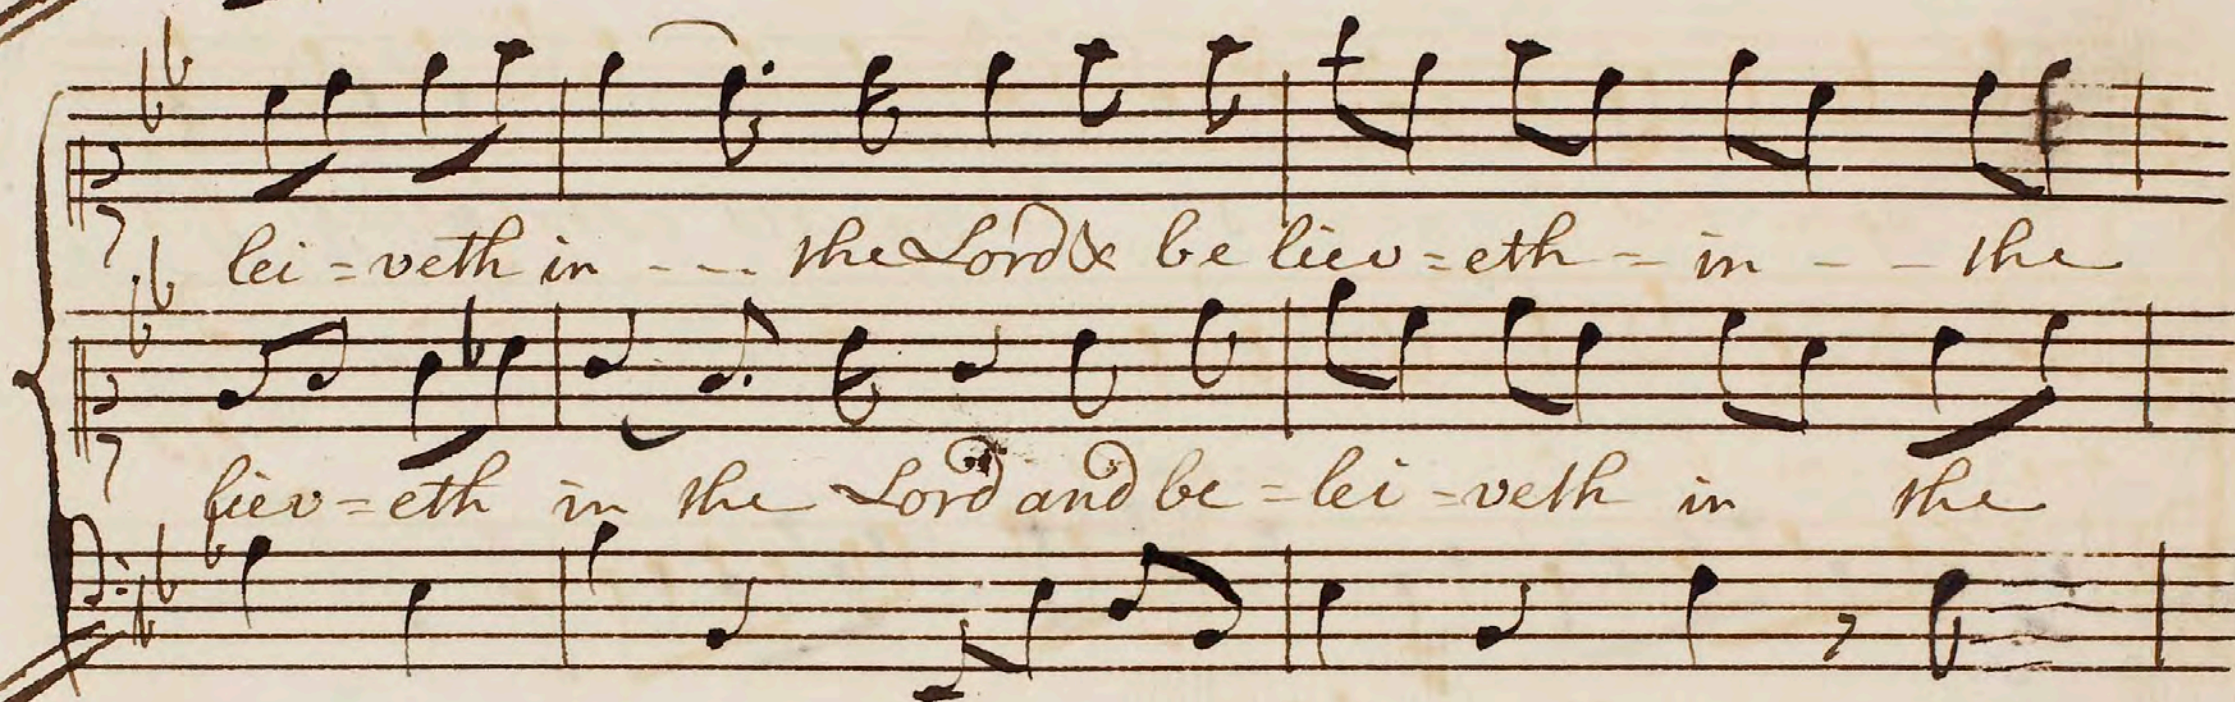 lei = veth in - - - the Lord & be liev = eth - - in - - - the
liev = eth in the Lord and be = lei = veth in the